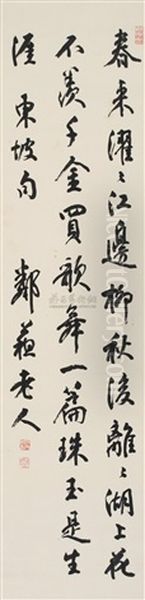 春来濯〻江邊柳秋後離〻湖上花
不羨千金買歌舞一篇珠玉是生
涯 東坡句 鄰蘇老人